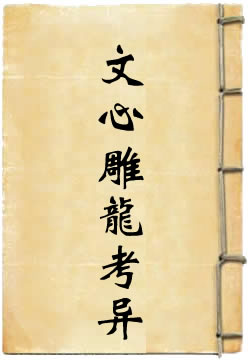 文心雕龍考异